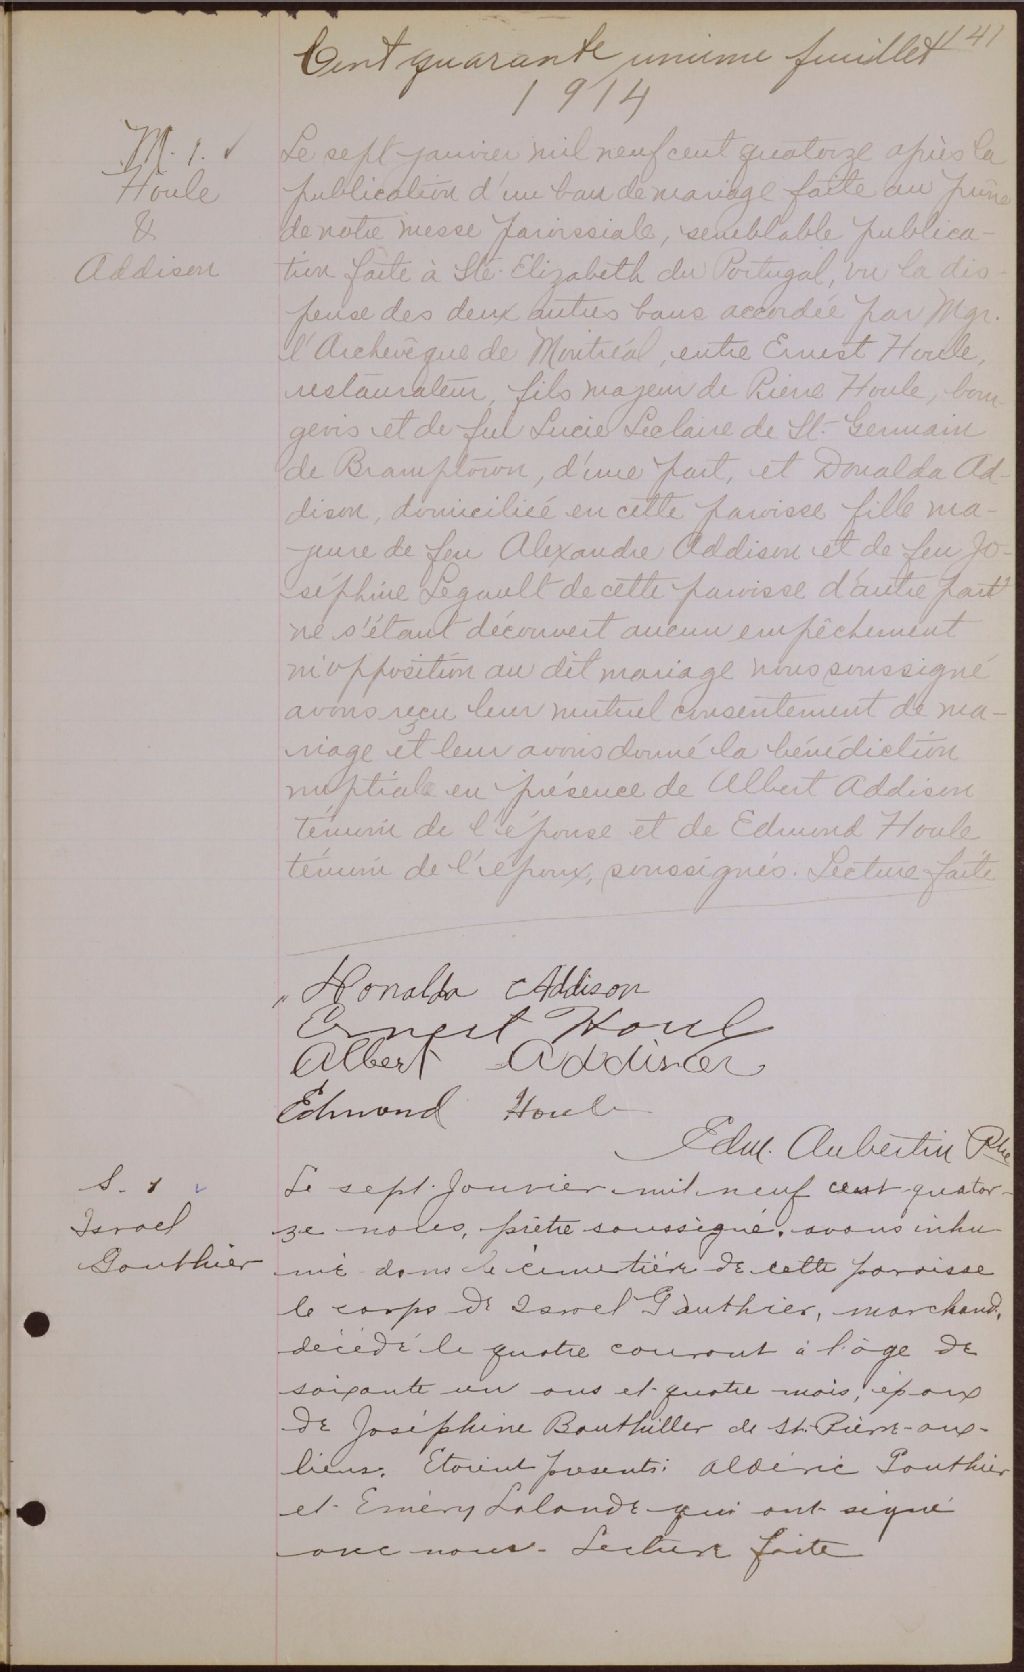 141
Cent quarante unième feuillet
1914
M. 1. ✓
Houle
&
Addison
Le sept janvier mil neuf cent quatorze après la
publication d'un ban de mariage faite au prône
de notre messe paroissiale, semblable publica-
tion faite à Ste. Elizabeth du Portugal, vu la dis-
pense des deux autres bans accordée par Mgr.
l'Archevêque de Montréal, entre Ernest Houle,
restaurateur, fils majeur de Pierre Houle, bour-
geois et de feu Lucie Leclaire de St. Germain
de Bramptown, d'une part, et Donalda Ad-
dison, domiciliée en cette paroisse fille ma-
jeure de feu Alexandre Addison et de feu Jo-
séphine Legault de cette paroisse d'autre part
ne s'étant découvert aucun empêchement
ni opposition au dit mariage nous soussigné
avons reçu leur mutuel consentement de ma-
riage et leur avons donné la bénédiction
nuptiale en présence de Albert Addison
témoin de l'épouse et de Edmond Houle
témoin de l'époux, soussignés. Lecture faite
Donalda Addison
Ernest Houl
Albert Addison
Edmond Houle
Edm. Aubertin Ptre
S. 1 ✓
Israel
Gauthier
Le sept Janvier mil neuf cent quator-
ze nous, prêtre soussigné, avons inhu
mé dans le cimetière de cette paroisse
le corps de Israel Gauthier, marchand,
décédé le quatre courant à l'âge de
soixante un ans et quatre mois, époux
de Joséphine Bouthiller de St. Pierre-aux-
liens. Etaient présents: Aldéric Gauthier
et Eméry Lalonde qui ont signé
avec nous. Lecture faite